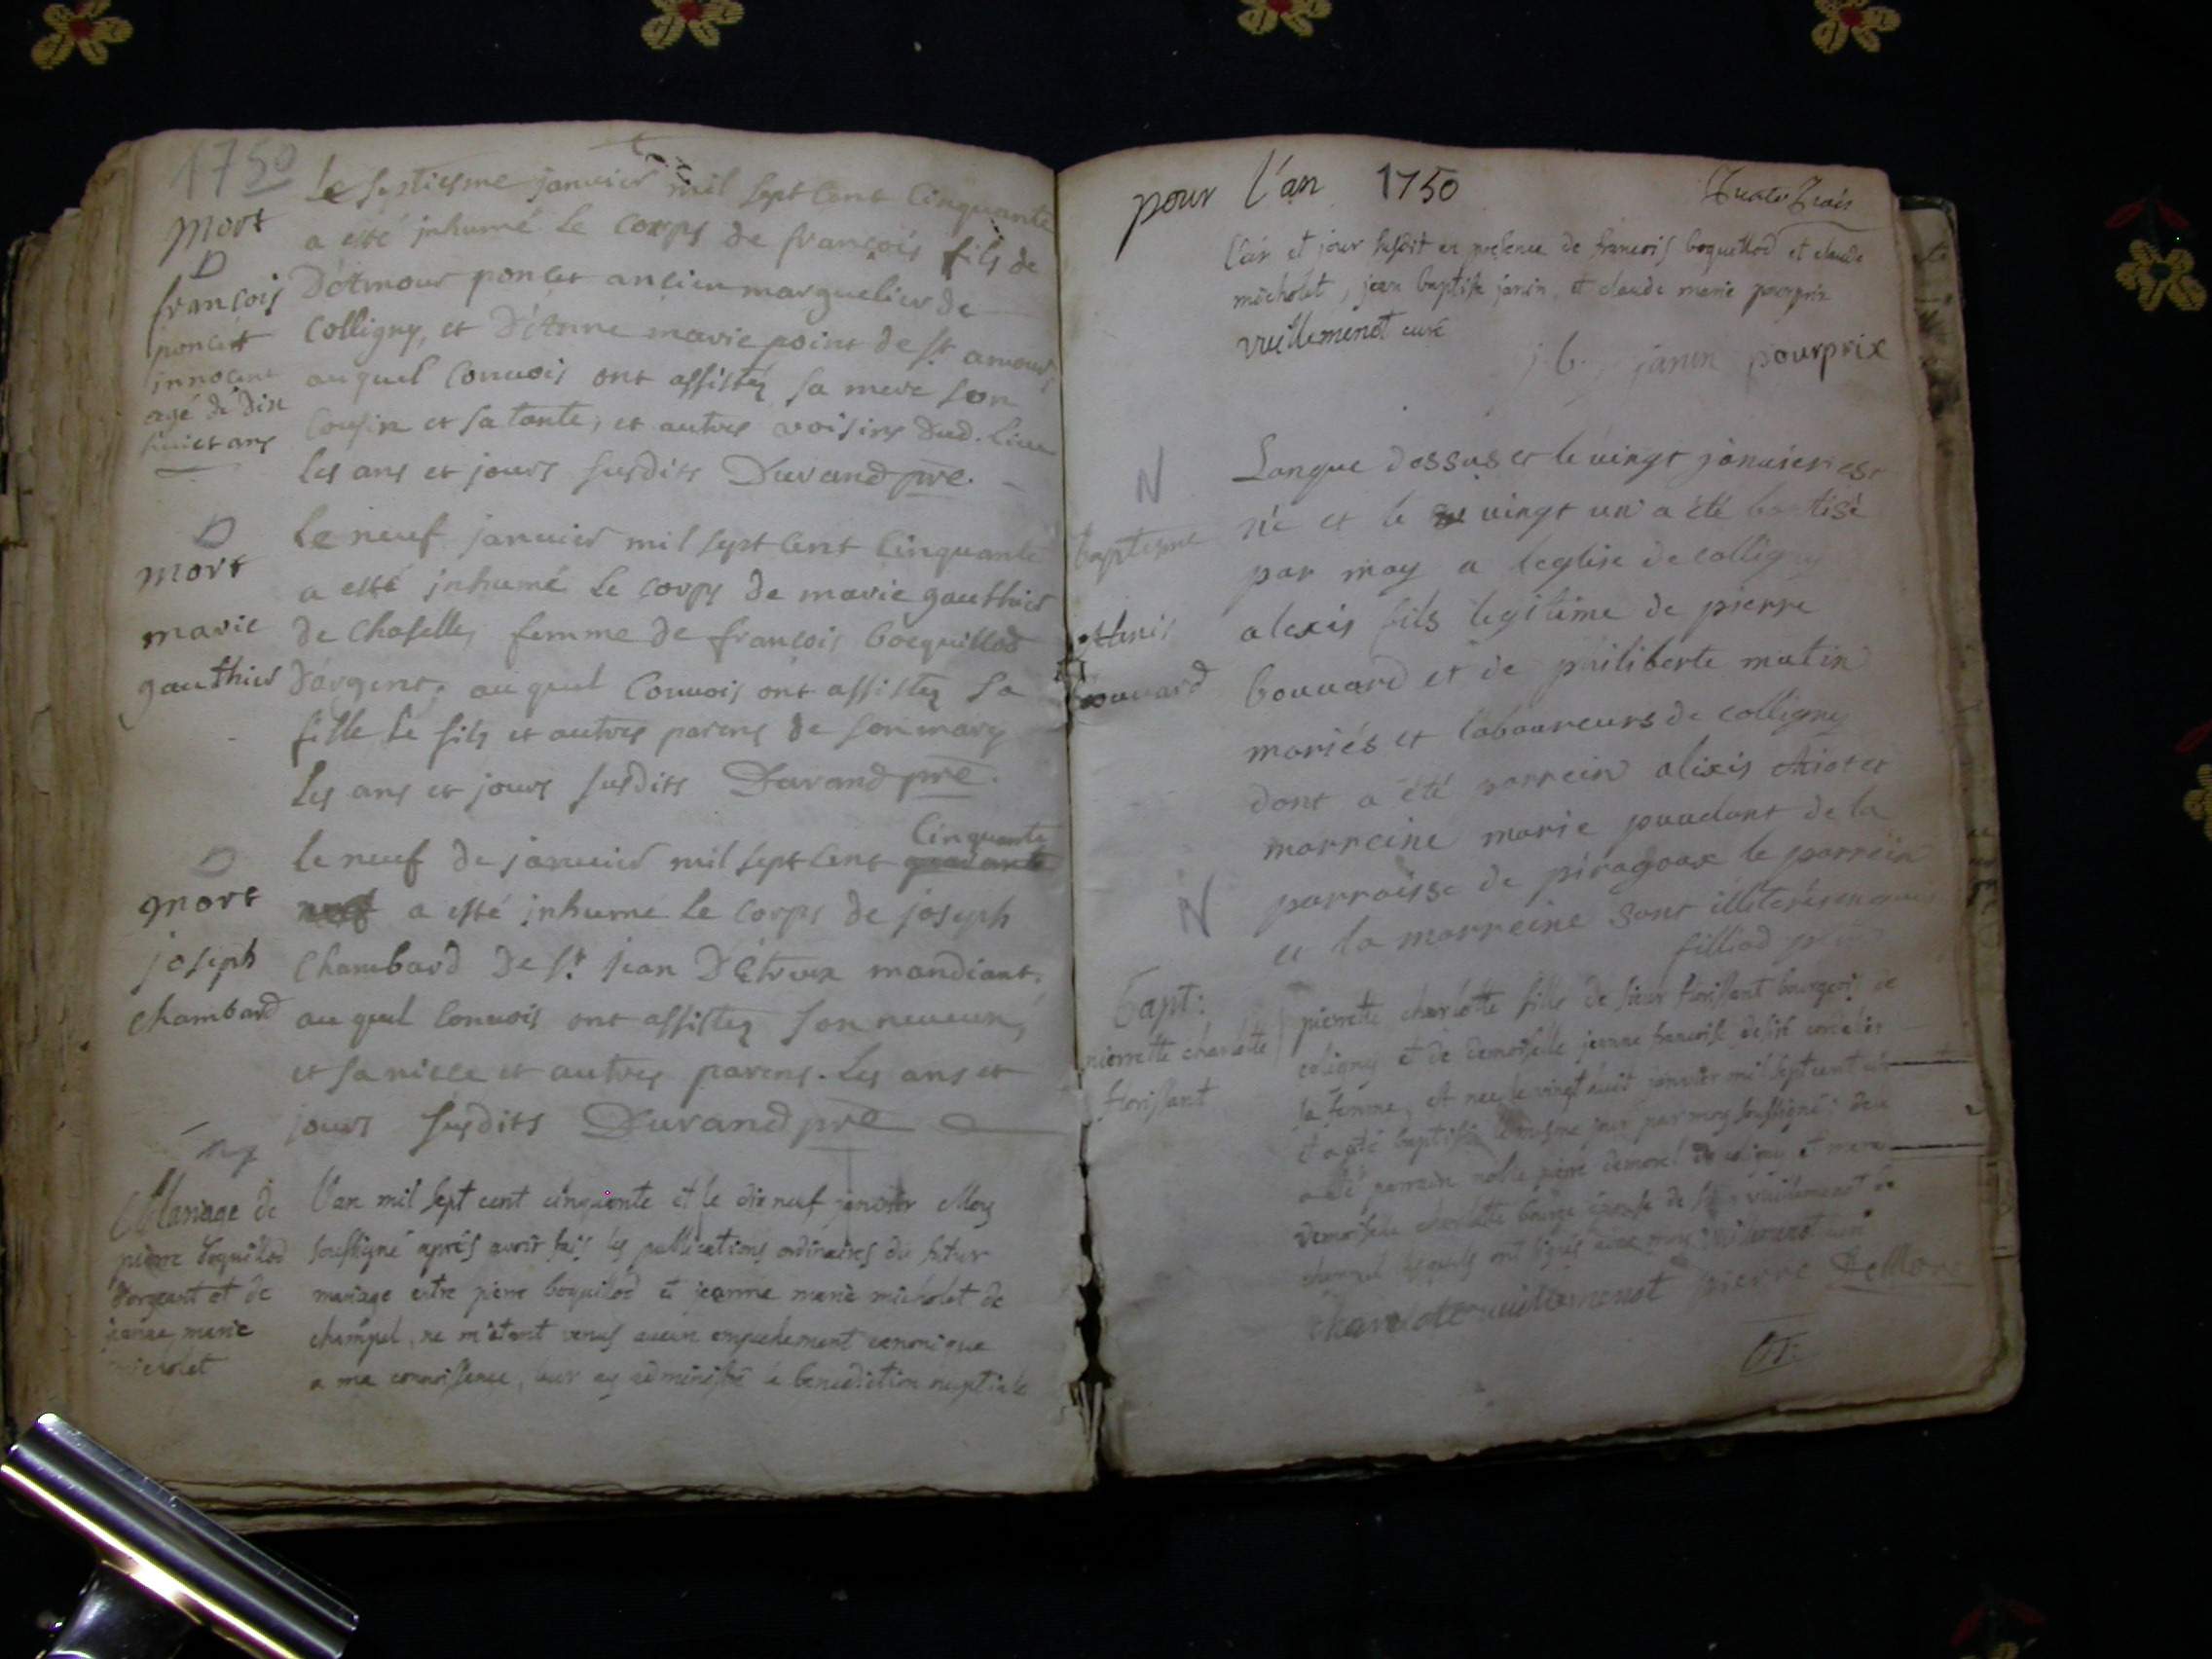 1750
Le septiesme janvier mil sept cent cinquante
mort
a esté inhumé Le corps de françois fils de
D
françois
D'Amour poncet ancien marguelier de
poncet
Colligny, et D'Anne marie point de St amour,
innocent
auquel Convois ont assistez sa mere son
agé de dix
Cousin et sa tante, et autres voisins dud. Lieu
huict ans
Les ans et jours susdits Durand pre.
D
mort
marie
gauthier
Le neuf janvier mil sept cent Cinquante
a esté inhumé Le corps de marie gauthier
de Chaselle, femme de françois bocquillod
D'argent, auquel Convois ont assistez sa
fille Le fils et autres parens de son mary
Les ans et jours susdits Durand pre.
D
mort
joseph
chambard
Cinquante
le neuf de janvier mil sept cent quarante
neuf a esté inhumé Le corps de joseph
Chambard De St jean D'Etreux mandiant,
auquel Convois ont assistez son neueux,
et sa niece et autres parens. Les ans et
jours susdits Durand pre
Mariage de
pierre boquillod
d'argent et de
jeanne marie
micholet
L'an mil sept cent cinquante et le dix neuf janvier Moy
soussigné après avoir fais les publications ordinaires du futur
mariage entre pierre boquillod et jeanne marie micholet de
champel, ne m'étant venus aucun empechement canonique
a ma connoissence, leur ay administré la benediction nuptiale
pour l'an 1750
L'an et jour susdit en presence de francois boquillod et claude
micholet, jean baptiste janin, et claude marie pourprix
vuillemenot curé
j. b. janin pourprix
N
baptesme
bouuard
Lanque dessus et le vingt januier est
né et le vingt un a été baptisé
par moy a leglise de colligny
alexis fils legitime de pierre
bouuard et de philiberte matin
mariés et laboureurs de colligny
dont a été parrein alexis et
marreine marie de la
parroisse de piragoux le parrein
et la marreine sont
filliod
N
bapt:
pierrette charlotte
florissant
pierrette charlotte fille de sieur florissant bourgeois de
coligny et de demoiselle jeanne francoise
sa femme, est nee le vingt huit janvier mil sept cent
et a eté baptisée le mesme jour par moy soussigné: dont
a eté parrain noble pierre demorel de
demoiselle charlotte épouse de vuillemenot de
champel lesquels ont signés avec moy vuillemenot curé
charlote vuillemenot pierre